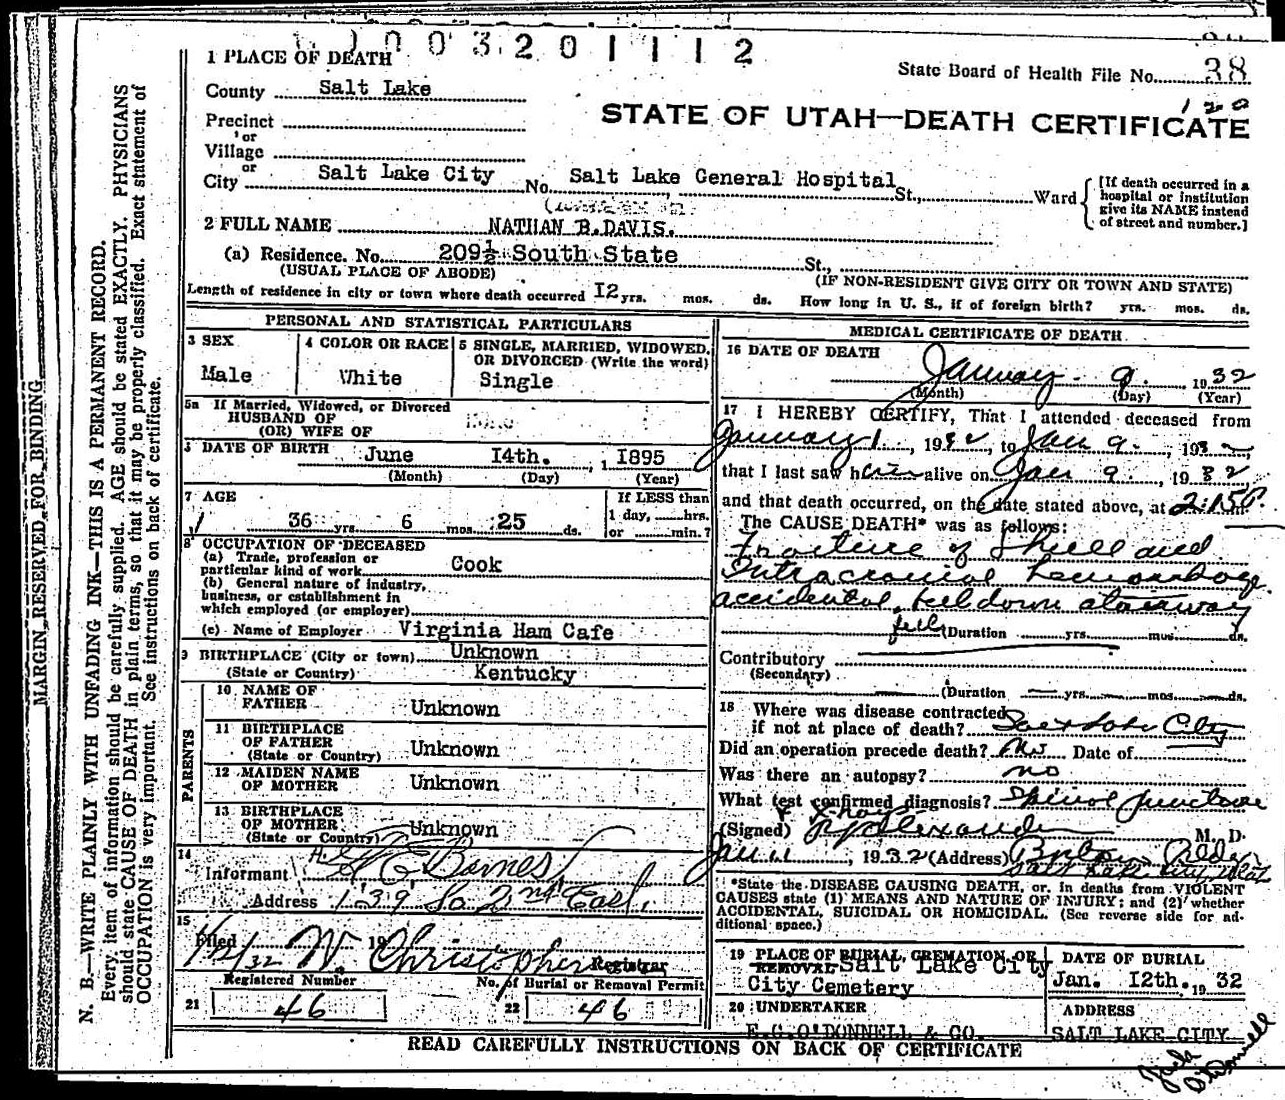 1003201112
1 PLACE OF DEATH
State Board of Health File No. 38
120
County Salt Lake
STATE OF UTAH—DEATH CERTIFICATE
Precinct
or
Village
or
City Salt Lake City No. Salt Lake General Hospital St., Ward
[If death occurred in a hospital or institution give its NAME instead of street and number.]
2 FULL NAME NATHAN B. DAVIS.
(a) Residence. No. 209½ South State St.,
(USUAL PLACE OF ABODE) (IF NON-RESIDENT GIVE CITY OR TOWN AND STATE)
Length of residence in city or town where death occurred 12 yrs. mos. ds. How long in U. S., if of foreign birth? yrs. mos. ds.
PERSONAL AND STATISTICAL PARTICULARS
3 SEX
Male
4 COLOR OR RACE
White
5 SINGLE, MARRIED, WIDOWED, OR DIVORCED (Write the word)
Single
5a If Married, Widowed, or Divorced
HUSBAND OF
(OR) WIFE OF
6 DATE OF BIRTH June 14th. 1895
(Month) (Day) (Year)
7 AGE
36 yrs. 6 mos. 25 ds.
If LESS than
1 day, hrs.
or min.?
8 OCCUPATION OF DECEASED
(a) Trade, profession or
particular kind of work Cook
(b) General nature of industry,
business, or establishment in
which employed (or employer)
(c) Name of Employer Virginia Ham Cafe
9 BIRTHPLACE (City or town) Unknown
(State or Country) Kentucky
PARENTS
10 NAME OF
FATHER Unknown
11 BIRTHPLACE
OF FATHER Unknown
(State or Country)
12 MAIDEN NAME
OF MOTHER Unknown
13 BIRTHPLACE
OF MOTHER Unknown
(State or Country)
14
Informant H. E. Barnes
Address 139 So 2nd East.
15
Filed 1/12/32 19 W. Christopherson Registrar
Registered Number
21 46
No. of Burial or Removal Permit
22 46
MEDICAL CERTIFICATE OF DEATH
16 DATE OF DEATH
January 9. 1932
(Month) (Day) (Year)
17 I HEREBY CERTIFY, That I attended deceased from
January 1, 1932, to Jan 9, 1932
that I last saw him alive on Jan 9, 1932
and that death occurred, on the date stated above, at 2:15P.
The CAUSE DEATH* was as follows:
Fracture of Skull and
Intracranial hemorrhage
accidental, fell down stairway
fell
(Duration yrs. mos. ds.
Contributory
(Secondary)
(Duration yrs. mos. ds.
18 Where was disease contracted
if not at place of death? Salt Lake City
Did an operation precede death? No Date of
Was there an autopsy? no
What test confirmed diagnosis? Spinal puncture
& X-ray
(Signed) R J Alexander M. D.
Jan 11, 1932 (Address) Boston Bldg
Salt Lake City, Utah
*State the DISEASE CAUSING DEATH, or, in deaths from VIOLENT
CAUSES state (1) MEANS AND NATURE OF INJURY; and (2) whether
ACCIDENTAL, SUICIDAL OR HOMICIDAL. (See reverse side for ad-
ditional space.)
19 PLACE OF BURIAL, CREMATION, OR
REMOVAL Salt Lake City
City Cemetery
DATE OF BURIAL
Jan. 12th. 1932
20 UNDERTAKER
E.G. O'DONNELL & CO.
ADDRESS
SALT LAKE CITY
READ CAREFULLY INSTRUCTIONS ON BACK OF CERTIFICATE
O'Donnell
MARGIN RESERVED FOR BINDING
N. B.—WRITE PLAINLY WITH UNFADING INK—THIS IS A PERMANENT RECORD.
Every item of information should be carefully supplied. AGE should be stated EXACTLY. PHYSICIANS
should state CAUSE OF DEATH in plain terms, so that it may be properly classified. Exact statement of
OCCUPATION is very important. See instructions on back of certificate.